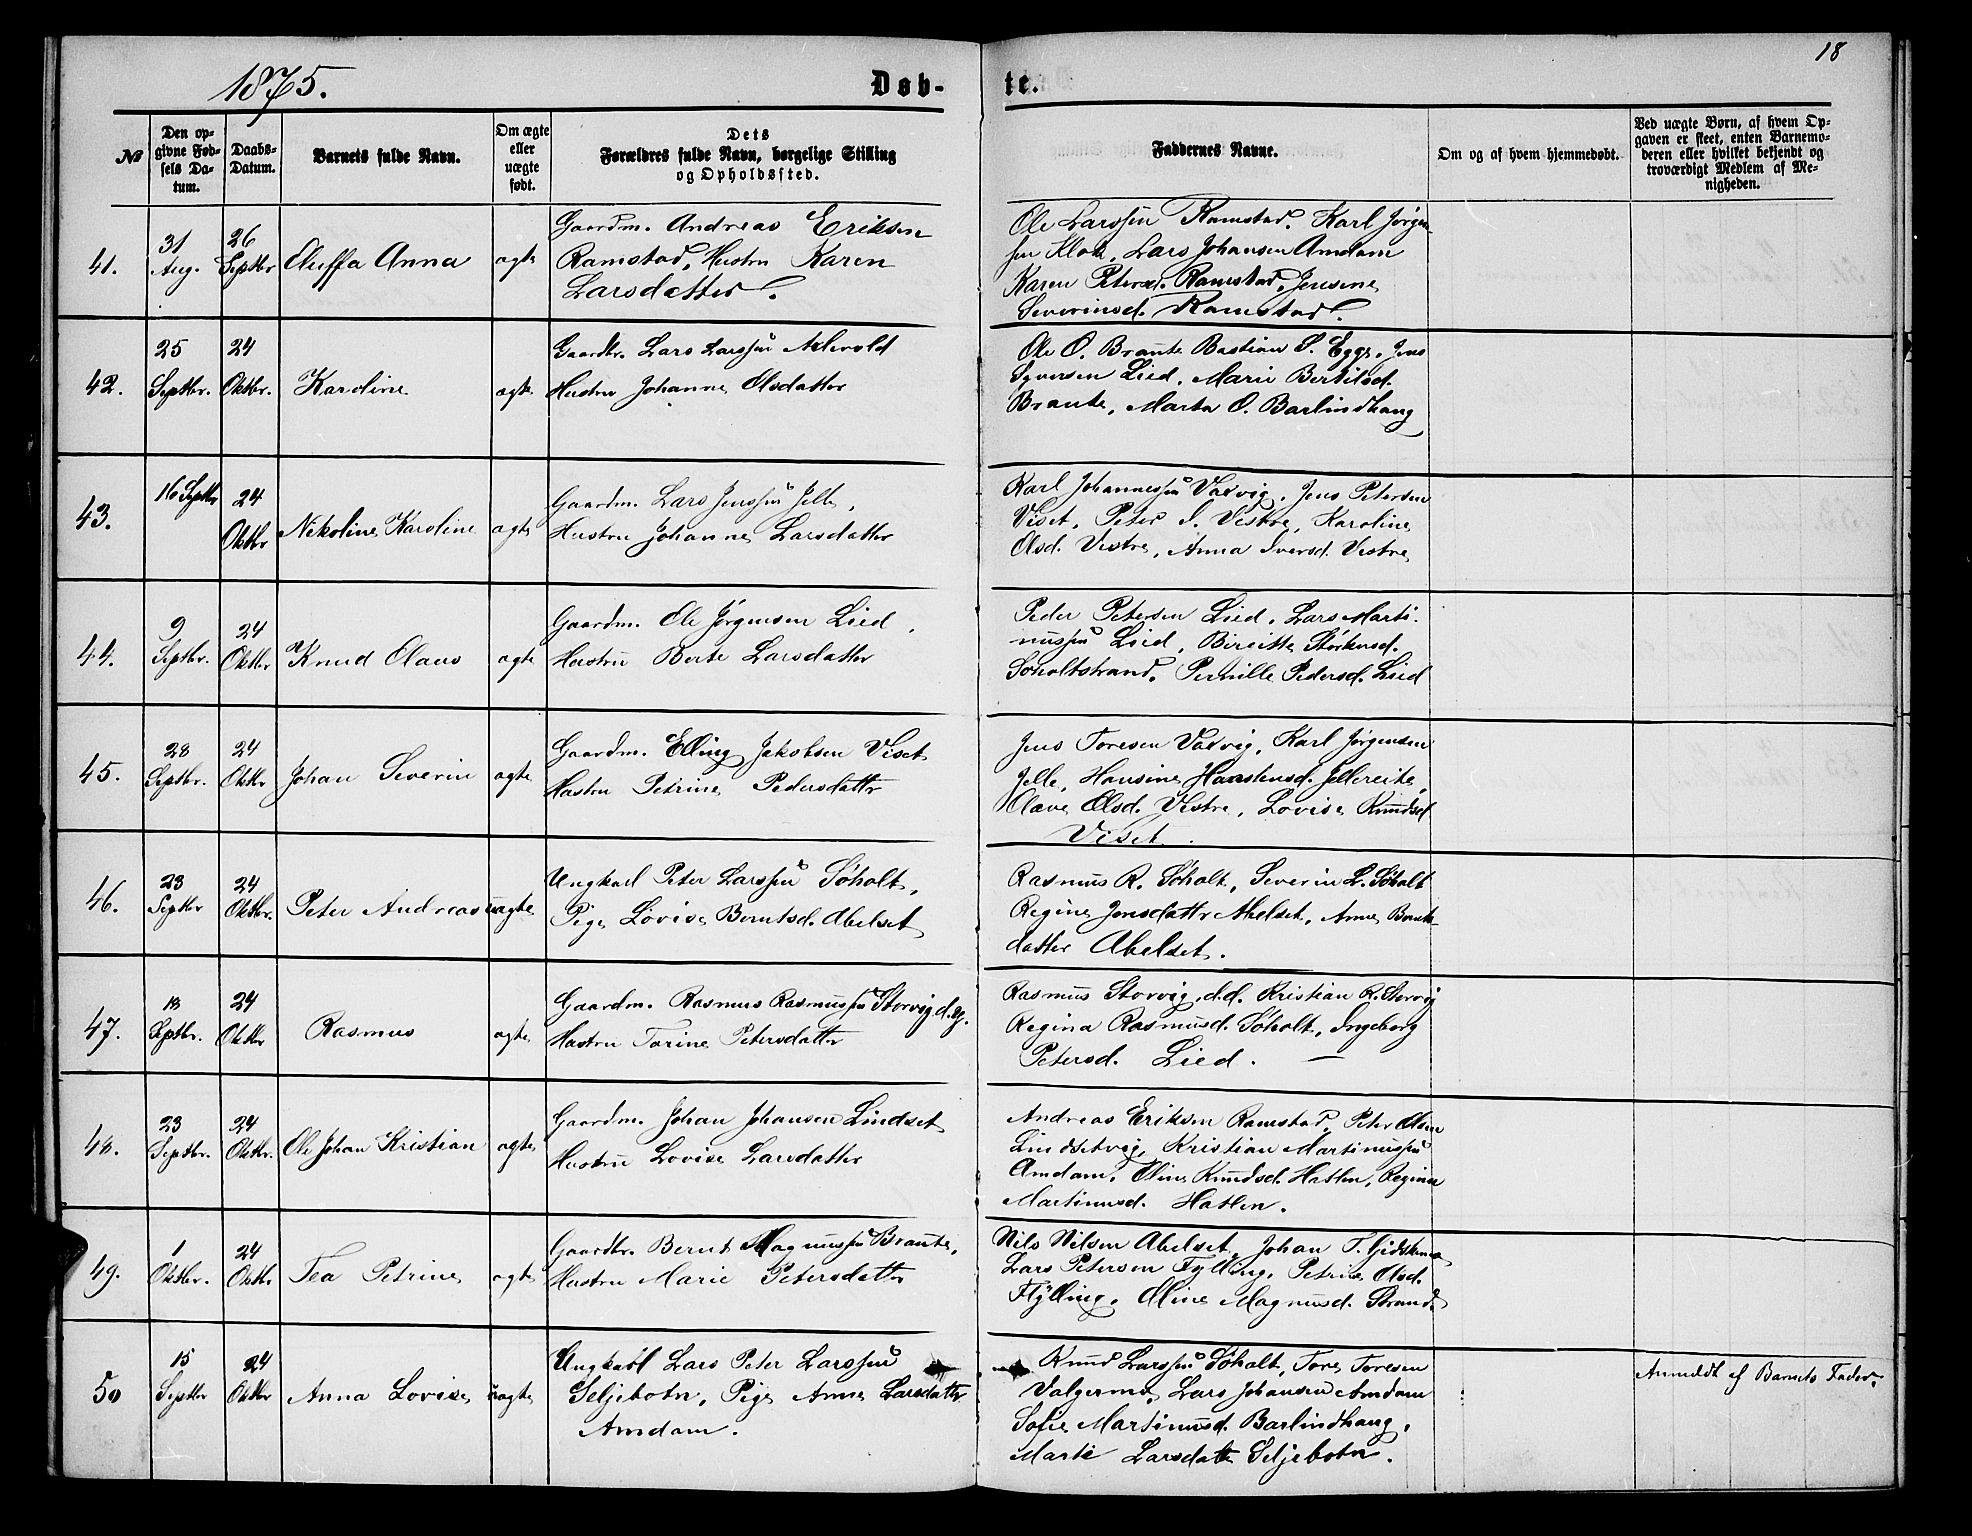 18
1875.
Døb-
te.
№
Den op-
givne Fød-
sels Da-
tum.
Daabs-
Datum.
Barnets fulde Navn.
Om ægte
eller
uægte
født.
Dets
Forældres fulde Navn, borgelige Stilling
og Opholdssted.
Faddernes Navne.
Om og af hvem hjemmedøbt.
Ved uægte Børn, af hvem Op-
gaven er skeet, enten Barnemo-
deren eller hvilket bekjendt og
troværdigt Medlem af Me-
nigheden.
41.
31
Aug.
26
Septbr
Anna
ægte
Gaardm. Andreas Eriksen
Ramstad, Hustru Karen
Larsdatter.
Ole Larssen Ramstad. Karl Jørgen-
sen Klok, Lars Johansen Amdam
Karen Petersd. Ramstad, Jensine
Severinsd. Ramstad.
42.
25
Septbr.
24
Oktbr.
Karoline
ægte
Gaardbr. Lars Larssen
Hustru Johanne Olsdatter
Ole O. Braute Bastian S. Egge, Jens
Syversen Lied, Marie Bertilsd.
Braute, Marta O. Barlindhaug
43.
16 Septbr
24
Oktbr
Nikoline Karoline
ægte
Gaardm. Lars Jenssen Jelle,
Hustru Johanne Larsdatter
Karl Johannessen Vaxvig, Jens Petersen
Viset, Peter I. Vestre, Karoline
Olsd. Vestre, Anna Iversd. Vestre
44.
9
Septbr.
24
Oktbr
Knud Olaus
ægte
Gaardm. Ole Jørgensen Lied,
Hustru Berte Larsdatter
Peder Petersen Lied, Lars Marti-
nussen Lied, Birgitte Størkersd.
Søholtstrand. Pernille Pedersd. Lied
45.
28
Septbr.
24
Oktbr
Johan Severin
ægte
Gaardm. Elling Jakobsen Viset
Hustru Petrine Pedersdattr
Jens Toresen Vaxvig, Karl Jørgensen
Jelle, Hansine Jellereite,
Olave Olsd. Vestre, Lovise Knudsd
Viset.
46.
23
Septbr
24
Oktbr.
Peter Andreas
uægte
Ungkarl Peter Larssen Søholt,
Pige Lovise Berntsd. Abelset
Rasmus R. Søholt, Severin L. Søholt
Regine Jensdattr Abelset, Anne Bernts-
datter Abelset.
47.
18
Septbr.
24
Oktbr
Rasmus
ægte
Gaardm. Rasmus Rasmussen Storvig d.y.
Hustru Torine Petersdattr
Rasmus Storvig d.d. Kristian R. Storvig
Regina Rasmusd. Søholt, Ingeborg
Petersd. Lied. —
48.
23
Septbr.
24
Oktbr.
Ole Johan Kristian
ægte
Gaardm. Johan Johansen Lindset
Hustru Lovise Larsdatter
Andreas Eriksen Ramstad, Peter Olsen
Lindsetvig, Kristian Martinussen
Amdam, Oline Knudsd. Hatlen, Regina
Martinusd. Hatlen.
49.
1
Oktbr.
24
Oktbr
Tea Petrine
ægte
Gaardbr. Bernt Magnussen Braute,
Hustru Marie Petersdattr
Nils Nilsen Abelset, Johan T.
Lars Petersen Fylling, Petrine Olsd.
Fylling, Oline Magnusd. Strand
50
15
Septbr
24
Oktbr
Anna Lovise
uægte
Ungkarl Lars Peter Larssen
Seljebotn, Pige Anne Larsdattr
Amdam.
Knud Larssen Søholt, Tore Toresen
Valgermo, Lars Johansen Amdam
Sofie Martinusd. Barlindhaug,
Marte Larsdattr Seljebotn.
Anmeldt af Barnets Fader.